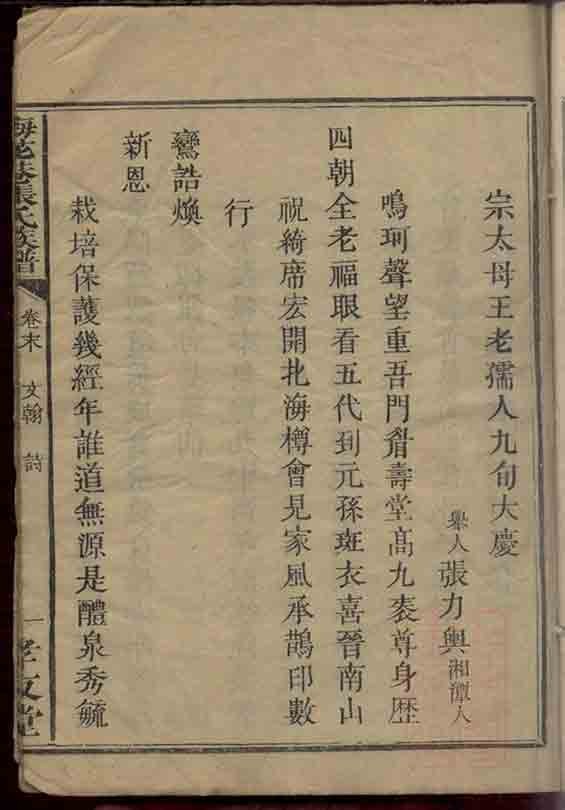 宗太母王老孺人九旬大慶
舉人張力輿湘潭人
鳴珂聲望重吾門胥壽堂高九袠尊身歷
四朝全老福眼看五代到元孫斑衣喜晉南山
祝綺席宏開北海樽會見家風承鵲印數
行
鸞誥煥
新恩
栽培保護幾經年誰道無源是醴泉秀毓
張氏族譜
卷末
文翰
詩
一
孝友堂